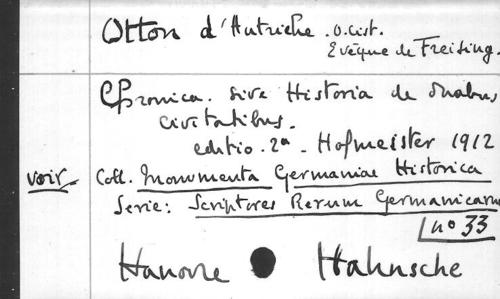 Otton d'Autriche . O. Cist.
Evêque de Freising.
Chronica. sive Historia de duabus
civitatibus.
editio. 2a. Hofmeister 1912
voir. Coll. Monumenta Germaniae Historica
Serie: Scriptores Rerum Germanicarum
no 33
Hanovre Hahnsche